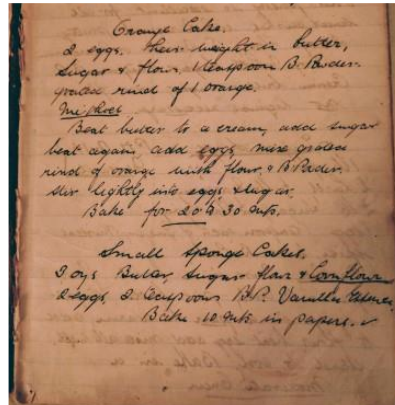 Orange Cake.
2 eggs. their weight in butter,
Sugar & flour, 1 teaspoon B. Powder.
grated rind of 1 orange.
Method
Beat butter to a cream, add sugar
beat again add eggs, mix grated
rind of orange with flour & B. Powder
stir lightly into eggs & sugar
Bake for 20 to 30 mts.
Small Sponge Cakes.
2 ozs Butter, Sugar flour & Cornflour
2 eggs, 2 teaspoons B.P. Vanilla
Bake 10 mts in papers.